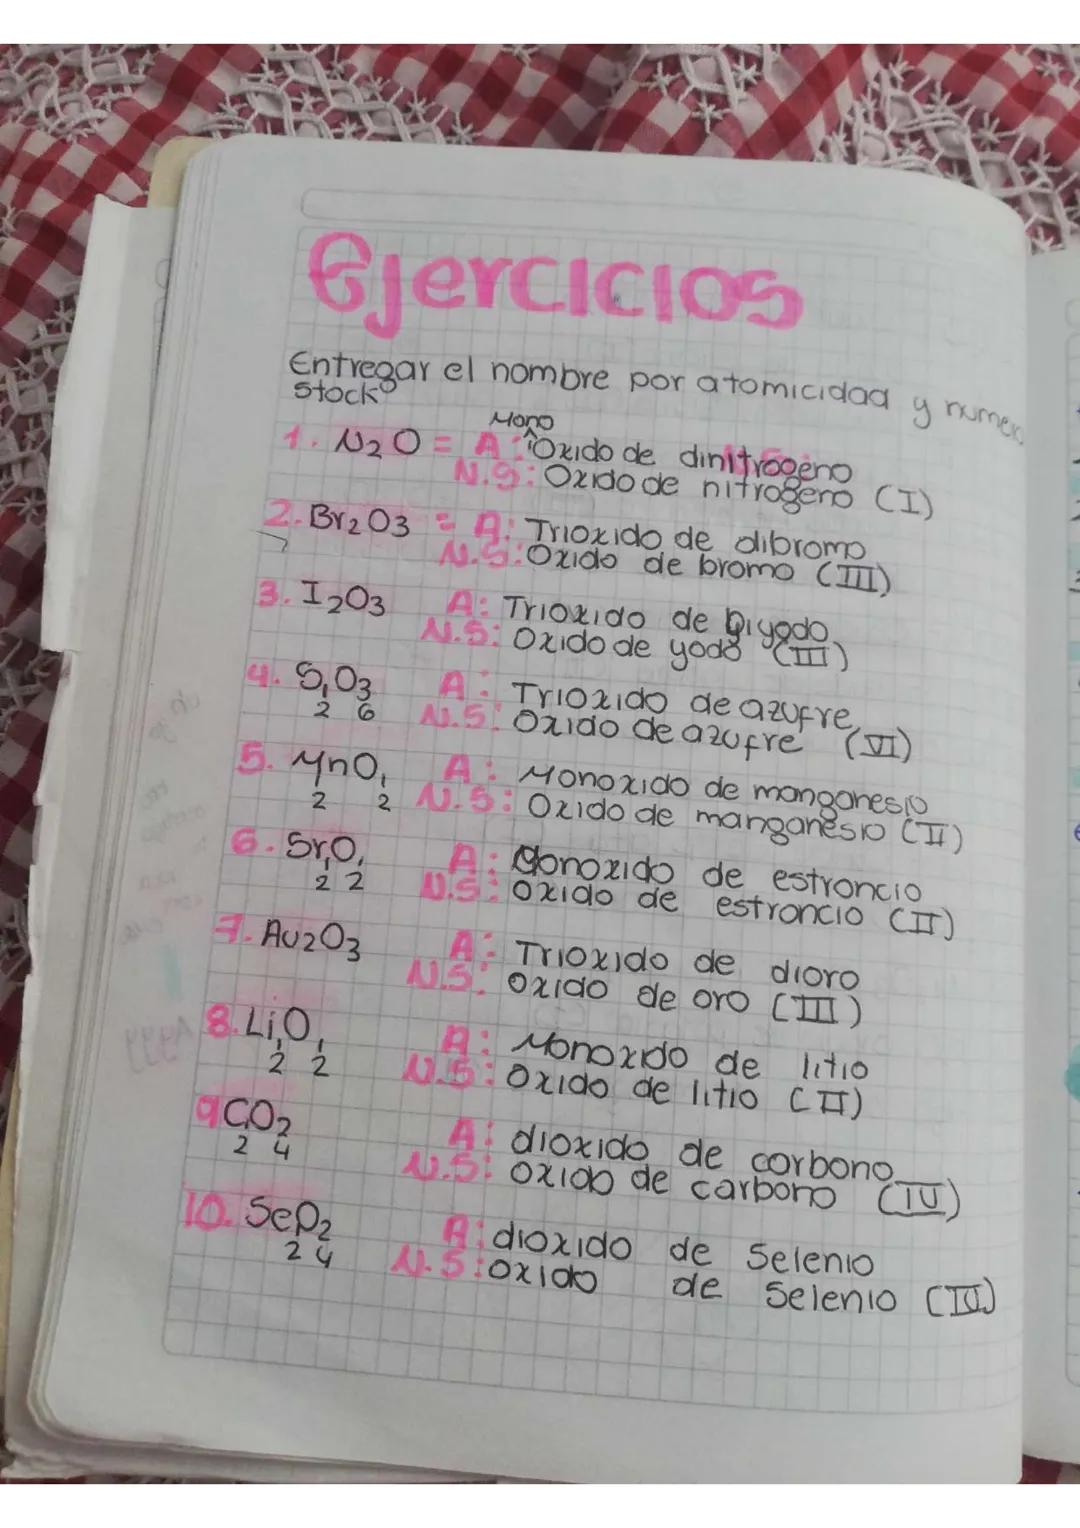 Ejercicios
Entregar el nombre por atomicidad y numero
stock
Mono
1. N2O = A: Oxido de dinitrogeno
N.S: Oxido de nitrogeno (I)
2. Br2O3 = A: Trioxido de dibromo
N.S: Oxido de bromo (III)
3. I2O3 A: Trioxido de Diyodo
N.S: Oxido de yodo (III)
4. S1O3 A: Trioxido de azufre
2 6 N.S: Oxido de azufre (VI)
5. MnO1 A: Monoxido de manganesio
2 2 N.S: Oxido de manganesio (II)
6. Sr1O1 A: Monoxido de estroncio
2 2 N.S: Oxido de estroncio (II)
7. Au2O3 A: Trioxido de dioro
N.S: Oxido de oro (III)
8. Li1O1 A: Monoxido de litio
2 2 N.S: Oxido de litio (II)
9 CO2 A: dioxido de carbono
2 4 N.S: Oxido de carbono (IV)
10. SeO2 A: dioxido de Selenio
2 4 N.S: Oxido de Selenio (IV)